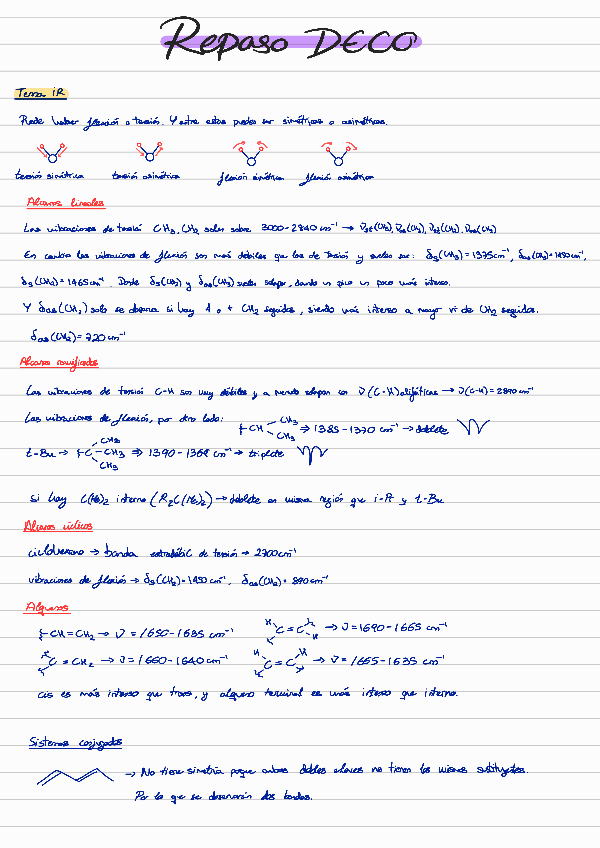 Repaso DECO
Tema iR
Puede haber flexión o tensión. Y entre estas pueden ser simétricas o asimétricas.
tensión simétrica tensión asimétrica flexión simétrica flexión asimétrica
Alcanos lineales
Las vibraciones de tensión CH₃, CH₂ salen sobre 3000-2840 cm⁻¹ →
En cambio las vibraciones de flexión son más débiles que las de tensión y suelen ser: δs(CH₃) = 1375 cm⁻¹, δas(CH₃) = 1450 cm⁻¹,
δs(CH₂) = 1465 cm⁻¹. Donde δs(CH₂) y δas(CH₃) suelen solapar, dando un pico un poco más intenso.
Y δas(CH₂) solo se observa si hay 4 o + CH₂ seguidos, siendo más intenso a mayor nº de CH₂ seguidos.
δas(CH₂) = 720 cm⁻¹
Alcanos ramificados
Las vibraciones de tensión C-H son muy débiles y a menudo solapan con ν(C-H) alifáticas → ν(C-H) = 2890 cm⁻¹
Las vibraciones de flexión, por otro lado: CH CH₃ CH₃ ⇒ 1385-1370 cm⁻¹ → doblete
t-Bu → C CH₃ CH₃ CH₃ ⇒ 1390-1368 cm⁻¹ → triplete
si hay C(Me)₂ interno (R₂C(Me)₂) → doblete en misma región que i-Pr y t-Bu
Alcanos cíclicos
ciclohexano → banda de tensión → 2700 cm⁻¹
vibraciones de flexión → δs(CH₂) = 1450 cm⁻¹, δas(CH₂) = 890 cm⁻¹
Alquenos
CH=CH₂ → ν = 1650-1635 cm⁻¹ C=C → ν = 1690-1665 cm⁻¹
C=CH₂ → ν = 1660-1640 cm⁻¹ C=C → ν = 1665-1635 cm⁻¹
cis es más intenso que trans, y alqueno terminal es más intenso que interno.
Sistemas conjugados
→ No tiene simetría porque ambos dobles enlaces no tienen los mismos sustituyentes.
Por lo que se observarán dos bandas.